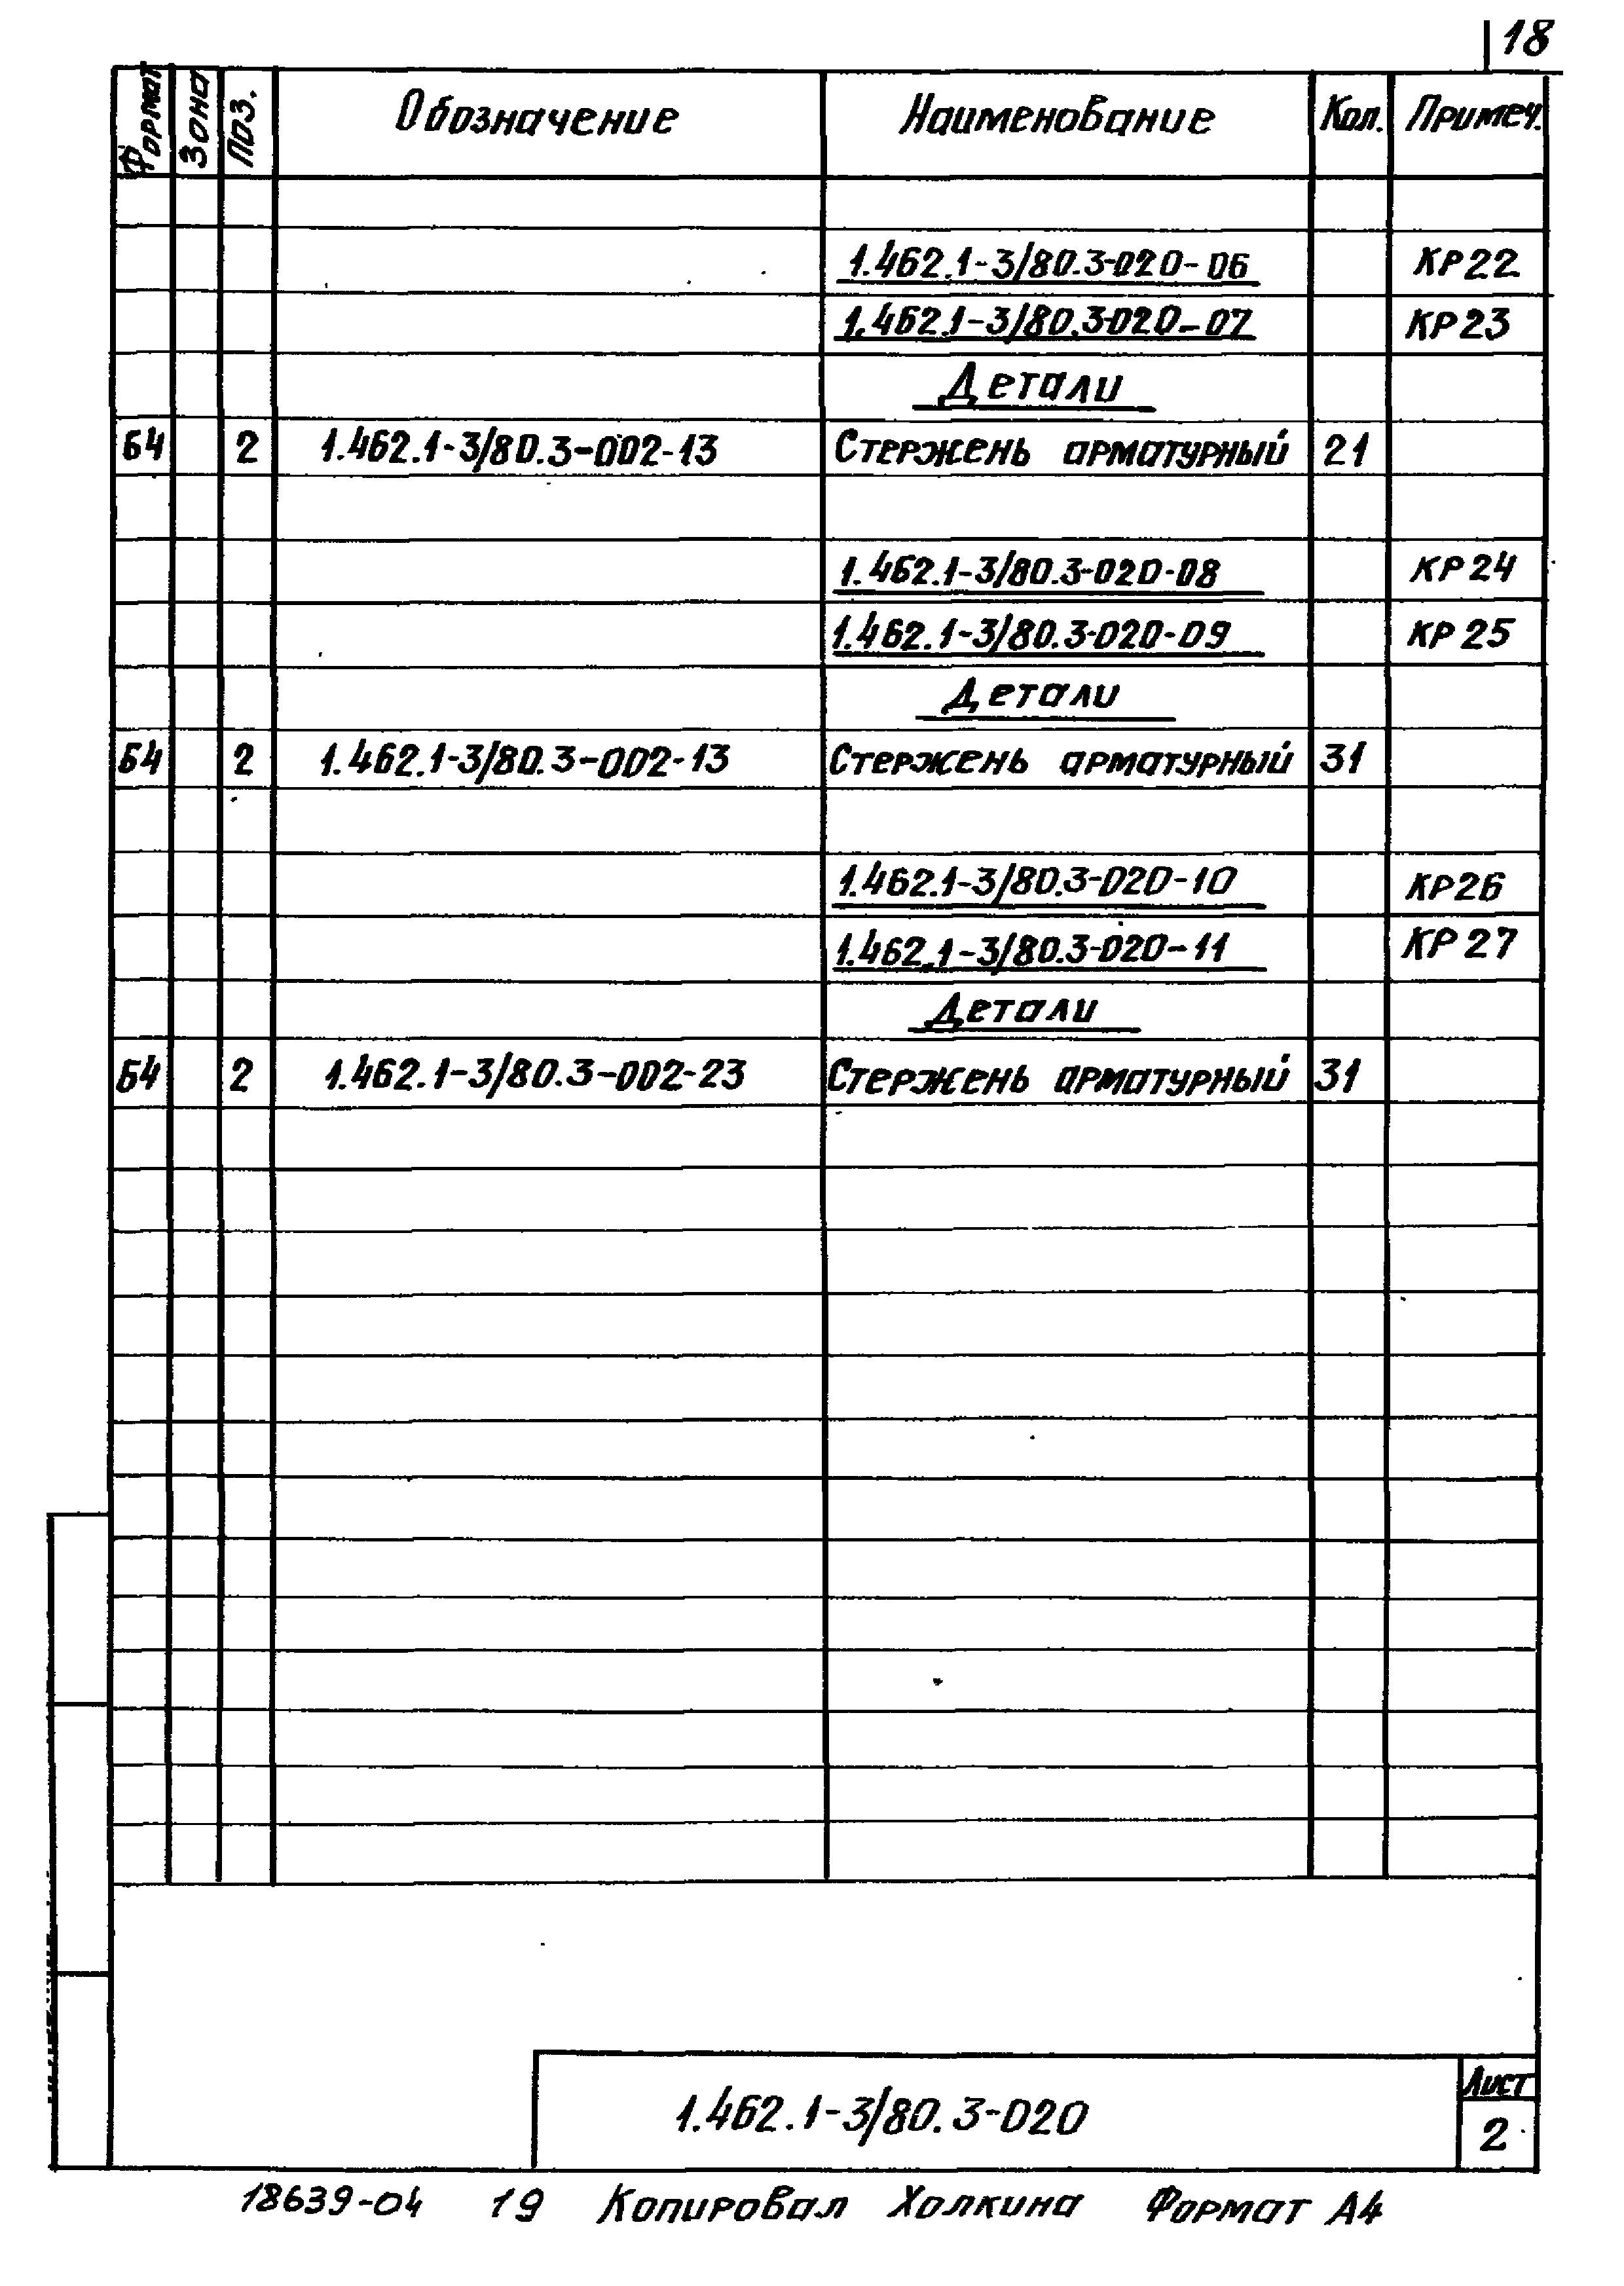 18
Формат Зона Поз. Обозначение Наименование Кол. Примеч.
1.462.1-3/80.3-020-06 КР22
1.462.1-3/80.3-020-07 КР23
Детали
Б4 2 1.462.1-3/80.3-002-13 Стержень арматурный 21
1.462.1-3/80.3-020-08 КР24
1.462.1-3/80.3-020-09 КР25
Детали
Б4 2 1.462.1-3/80.3-002-13 Стержень арматурный 31
1.462.1-3/80.3-020-10 КР26
1.462.1-3/80.3-020-11 КР27
Детали
Б4 2 1.462.1-3/80.3-002-23 Стержень арматурный 31
1.462.1-3/80.3-020
Лист
2
18639-04 19 Копировал Холкина Формат А4